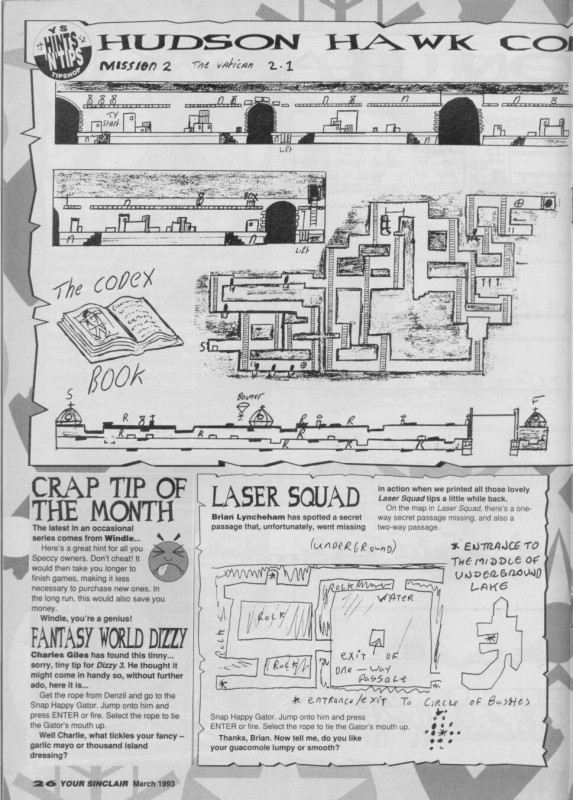 YS
HINTS
'N'TIPS
TIPSHOP
HUDSON HAWK CO
MISSION 2 THE VATICAN 2.1
TY
START
Lift
Lift
The CODEX
BOOK
S
S
BOUNCER
F
R
R
R
R
R
R
R
R
R
CRAP TIP OF
THE MONTH
The latest in an occasional
series comes from Windle...
Here's a great hint for all you
Speccy owners. Don't cheat! It
would then take you longer to
finish games, making it less
necessary to purchase new ones. In
the long run, this would also save you
money.
Windle, you're a genius!
FANTASY WORLD DIZZY
Charles Giles has found this tinny...
sorry, tiny tip for Dizzy 3. He thought it
might come in handy so, without further
ado, here it is...
Get the rope from Denzil and go to the
Snap Happy Gator. Jump onto him and
press ENTER or fire. Select the rope to tie
the Gator's mouth up.
Well Charlie, what tickles your fancy –
garlic mayo or thousand island
dressing?
LASER SQUAD
Brian Lyncheham has spotted a secret
passage that, unfortunately, went missing
in action when we printed all those lovely
Laser Squad tips a little while back.
On the map in Laser Squad, there's a one-
way secret passage missing, and also a
two-way passage.
(UNDERGROUND)
* ENTRANCE TO
THE MIDDLE OF
UNDERGROUND
LAKE
ROCK
WATER
ROCK
ROCK
ROCK
EXIT OF
ONE-WAY
PASSAGE
* entrance/exit To CIRCLE OF BUSHES
Snap Happy Gator. Jump onto him and press
ENTER or fire. Select the rope to tie the Gator's mouth up.
Thanks, Brian. Now tell me, do you like
your guacomole lumpy or smooth?
26 YOUR SINCLAIR March 1993